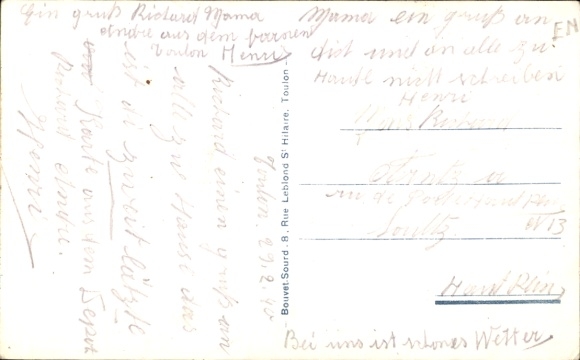 Ein gruß Richard Mama
André aus dem
Toulon Henri
Mama ein gruß an
dich und an alle zu
Hause nicht schreiben
Henri
EN
Toulon. 29.2.40
Richard einen gruß an
alle zu Hause das
ist die zweit letzte
Karte aus dem Depot
Richard André.
Henri
Bouvet-Sourd. 8, Rue Leblond St Hilaire, Toulon -
rue de
Soultz
N 13
Haut Rhin
Bei uns ist schönes Wetter